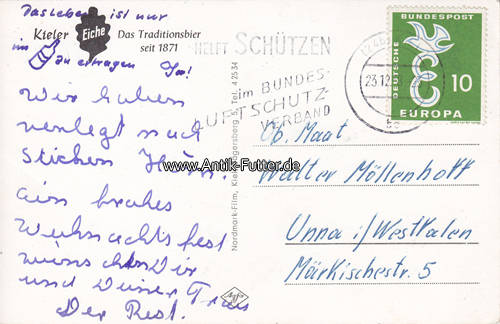 Das Leben ist nur
Kieler Eiche Das Traditionsbier
seit 1871
im zu ertragen
HELFT SCHÜTZEN
im BUNDES-
LUFTSCHUTZ-
VERBAND
23.12.
DEUTSCHE BUNDESPOST
10
EUROPA
Wir haben
verlegt nach
Ein frohes
Weihnachtsfest
wünschen Dir
und Deiner Frau
Der Rest.
Nordmark-Film, Kiel, Tel. 4 25 34
Agfa
www.Antik-Futter.de
Ob. Maat
Walter Möllenhoff
Unna i/Westfalen
Märkischestr. 5